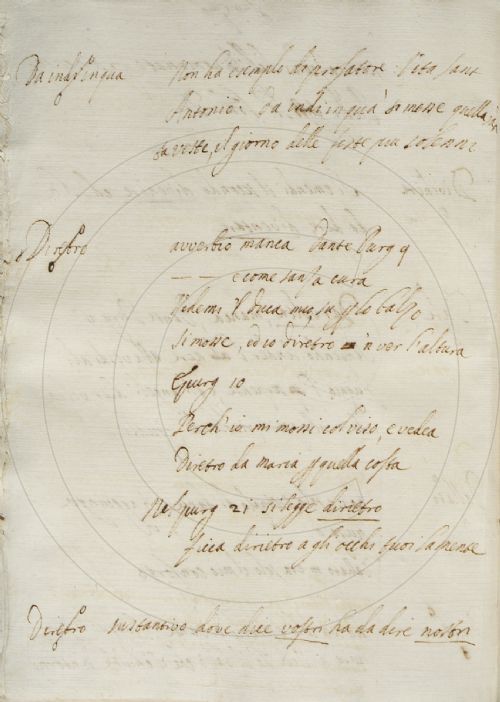 Da indi in qua non ha esempli di prosatore. Vita Sant
Antonio: Da indi in qua si messe quella
veste, il giorno delle feste piu solenni
Diretro avverbio manca Dante Purg 9
e come sanza cura
Vedemi 'l Duca mio, su p lo balzo
si mosse, ed io diretro in ver l'altura
E purg 10
Perch' io mi mossi col viso, e vedea
Diretro da maria p quella costa
Nel purg 21 si legge dirietro
ficca dirietro a gli occhi tuoi la mente
Diretro sustantivo dove dice vostri ha da dire nostri